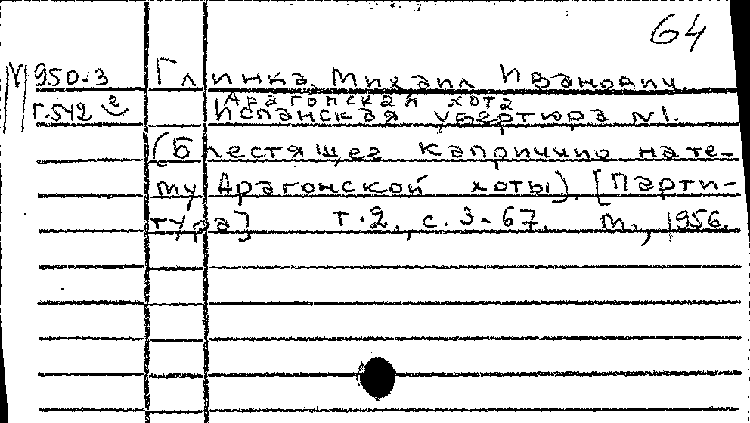 64
М 950-3 Глинка Михаил Иванович
Арагонская хота
Г.542 Испанская увертюра №1.
(Блестящее каприччио на те-
му Арагонской хоты). [Парти-
тура] Т.2., с.3-67. М., 1956.